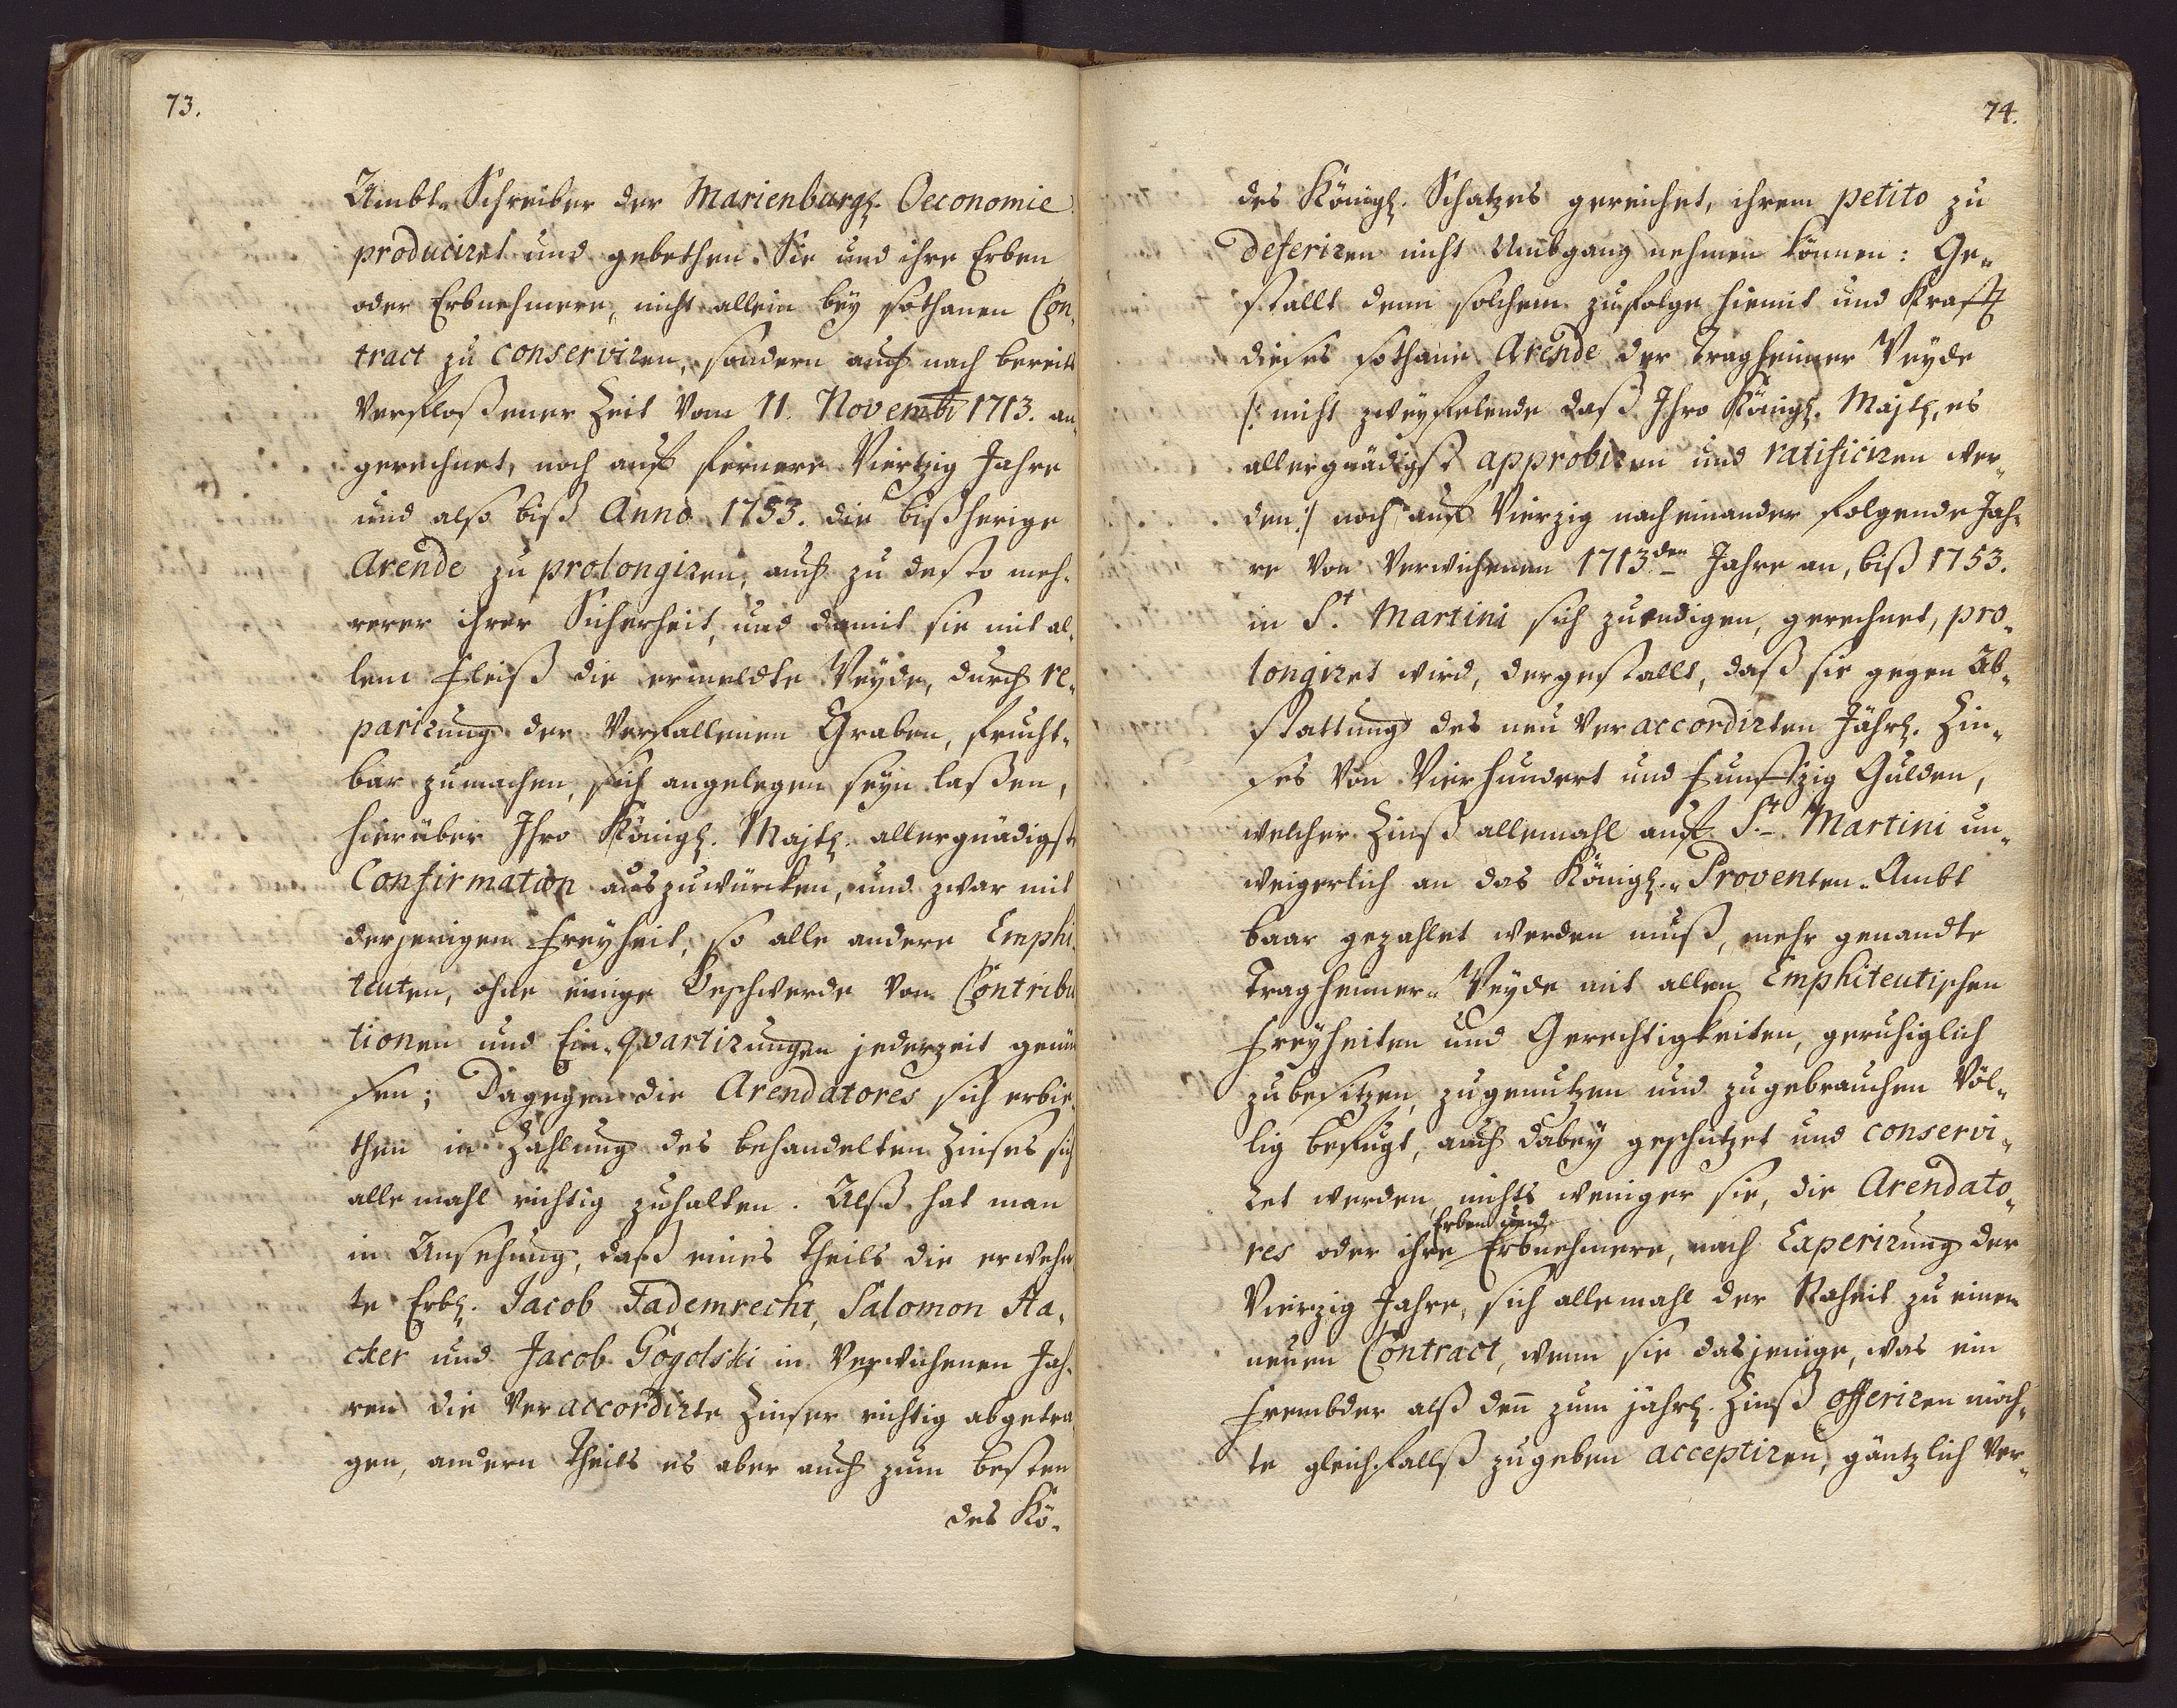 73.
Ambt-Schreiber der Marienburgl. Oeconomie
produciret und gebethen. Sie und ihre Erben
oder Erbnehmere, nicht allein bey sothanen Con-
tract zu conserviren, sondern auch nach bereits
Verfloßener Zeit Vom 11. Novembr 1713. an-
gerechnet, noch auff fernere Viertzig Jahre
und also biß Anno 1753. die bißherige
Arende zu prolongiren, auch zu desto meh-
rerer ihrer Sicherheit, und damit sie mit al-
lem Fleiß die ermeldte Weyde, durch re-
parirung der Verfallenen Graben, frucht-
bar zumachen, sich angelegen seyn laßen,
hierüber Ihro Königl. Majtl. allergnädigste
Confirmation auszuwürcken, und zwar mit
derjenigen Freyheit, so alle andere Emphi-
teuten, ohne einige Beschwerde Von Contribu
tionen und Ein-qvartirungen jederzeit genüe
sen; Dagegen die Arendatores sich erbie-
then in Zahlung des behandelten Zinses sich
alle mahl richtig zuhalten. Alß hat man
in Ansehung, daß eines Theils die erwehn
te Erbl. Jacob Fademrecht, Salomon Ha-
cker und Jacob Gogolski in Verwichenen Jah-
ren die Veraccordirte Zinser richtig abgetra
gen, andern Theils es aber auch zum besten
des Kö-
74.
des Königl. Schatzes gereichet, ihrem petito zu
deferiren nicht Umbgang nehmen können: Ge-
stallt denn solchem zufolge hiemit und Krafft
dieses sothane Arende der Tragheimer Weyde
/: nicht zweyfelende daß Ihro Königl. Majtl. es
allergnädigst approbiren und ratificiren wer-
den:/ noch auff Vierzig nach einander folgende Jah-
re Von Verwichenen 1713den Jahre an, biß 1753.
in St. Martini sich zuendigen, gerechnet, pro-
longiret wird, dergestallt, daß sie gegen Ab-
stattung des neu Veraccordirten Jährl. Zin-
ses Von Vierhundert und Funffzig Gulden,
welcher Zinß allemahl auff St. Martini un-
weigerlich an das Königl.-Proventen-Ambt
baar gezahlet werden muß, mehr genandte
Tragheimer-Weyde mit allen Emphiteutischen
Freyheiten und Gerechtigkeiten, geruhiglich
zubesitzen, zugenutzen und zugebrauchen Völ-
lig befugt, auch dabey geschützet und conservi-
ret werden, nichts weniger sie, die Arendato-
res oder ihre Erben und Erbnehmere, nach Experirung der
Vierzig Jahre, sich allemahl der Naheit zu einem
neuen Contract, wenn sie dasjenige, was ein
Frembder alß den zum jährl. Zinß offeriren möch-
te gleichfallß zugeben acceptiren, gäntzlich Ver-